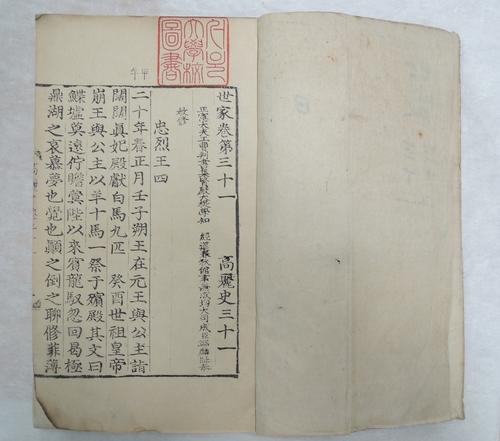 大學校
圖書
世家卷第三十一 高麗史三十一
正憲大夫工曹判書集賢殿大提學知 經筵春秋館事兼成均大司成臣鄭麟趾奉
教修
忠烈王四
甲午
二十年春正月壬子朔王在元王與公主詣
闊闊眞妃殿獻白馬九匹 癸酉世祖皇帝
崩王與公主以羊十馬一祭于殯殿其文曰
鰈墟莫遠佇瞻蓂陛以來賓龍馭忽回曷極
鼎湖之哀慕夢也覺也顚之倒之聊修菲薄